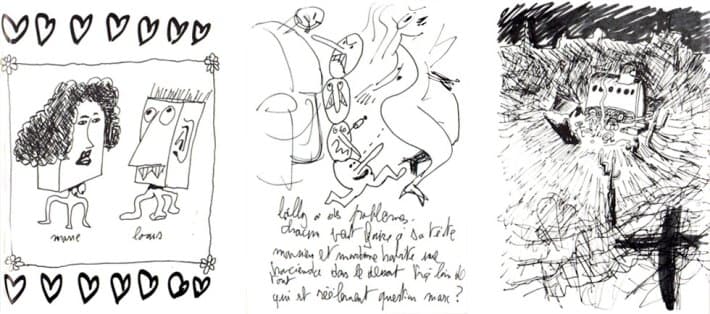 louis
a des problemes.
chacun veut faire à sa tête
monsieur et madame habite une
dans le désert loin de
tout
qui est réellement question marc ?